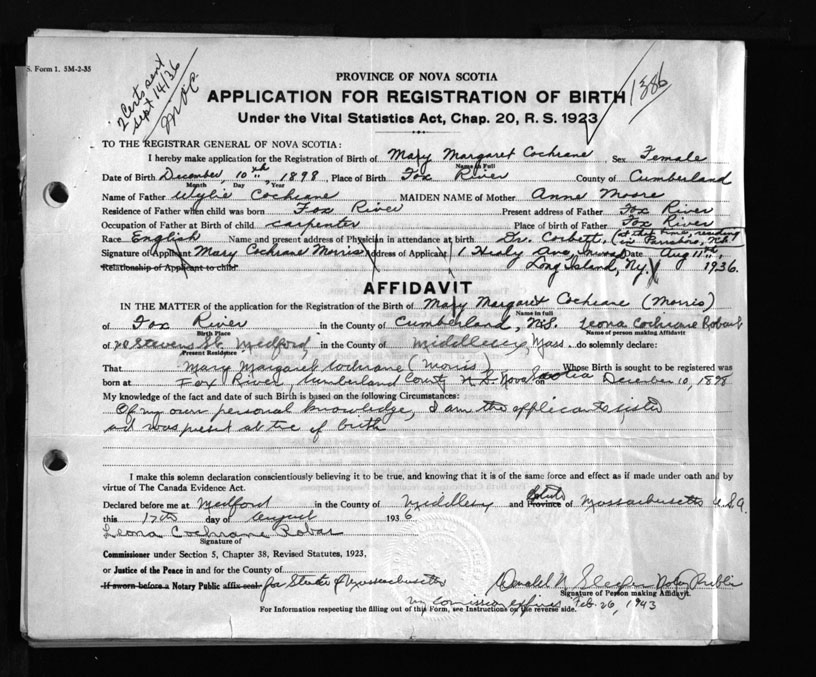 S. Form 1. 5M-2-35
2 Certs sent
Sept 14/36
1386
PROVINCE OF NOVA SCOTIA
APPLICATION FOR REGISTRATION OF BIRTH
Under the Vital Statistics Act, Chap. 20, R. S. 1923
TO THE REGISTRAR GENERAL OF NOVA SCOTIA:
I hereby make application for the Registration of Birth of Mary Margaret Cochrane Sex Female
Name in Full
Date of Birth December, 10th, 1898, Place of Birth Fox River County of Cumberland
Month Day Year
Name of Father Wylie Cochrane MAIDEN NAME of Mother Anne Moore
Residence of Father when child was born Fox River Present address of Father Fox River
Occupation of Father at Birth of child carpenter Place of birth of Father Fox River
Race English Name and present address of Physician in attendance at birth Dr. Corbett, (at that time, residing in Parrsboro, N.S.
Signature of Applicant Mary Cochrane Morris Address of Applicant 1 Healy Ave, Date Aug 11th,
Relationship of Applicant to child Long Island, N.y. 1936.
AFFIDAVIT
IN THE MATTER of the application for the Registration of the Birth of Mary Margaret Cochrane (Morris)
Name in full
of Fox River in the County of Cumberland, N.S. Leona Cochrane Robar
Birth Place Name of person making Affidavit
of Stevens St. Medford, in the County of Middlesex, Mass. do solemnly declare:
Present Residence
That Mary Margaret Cochrane (Morris) Whose Birth is sought to be registered was
born at Fox River, Cumberland County N.S. Nova Scotia on December 10, 1898
My knowledge of the fact and date of such Birth is based on the following Circumstances:
Of my own personal knowledge, I am the applicants sister
ad was present at tie of birth
I make this solemn declaration conscientiously believing it to be true, and knowing that it is of the same force and effect as if made under oath and by
virtue of The Canada Evidence Act.
Declared before me at Medford in the County of Middlesex and State Province of Massachusetts U.S.A.
this 17th day of August 1936
Leona Cochrane Robar
Signature of
Commissioner under Section 5, Chapter 38, Revised Statutes, 1923,
or Justice of the Peace in and for the County of
If sworn before a Notary Public affix seal for State of Massachusetts Donald N. Sleeper Notary Public
Signature of Person making Affidavit.
my commission expires Feb. 26, 1943
For Information respecting the filling out of this Form, see Instructions on the reverse side.